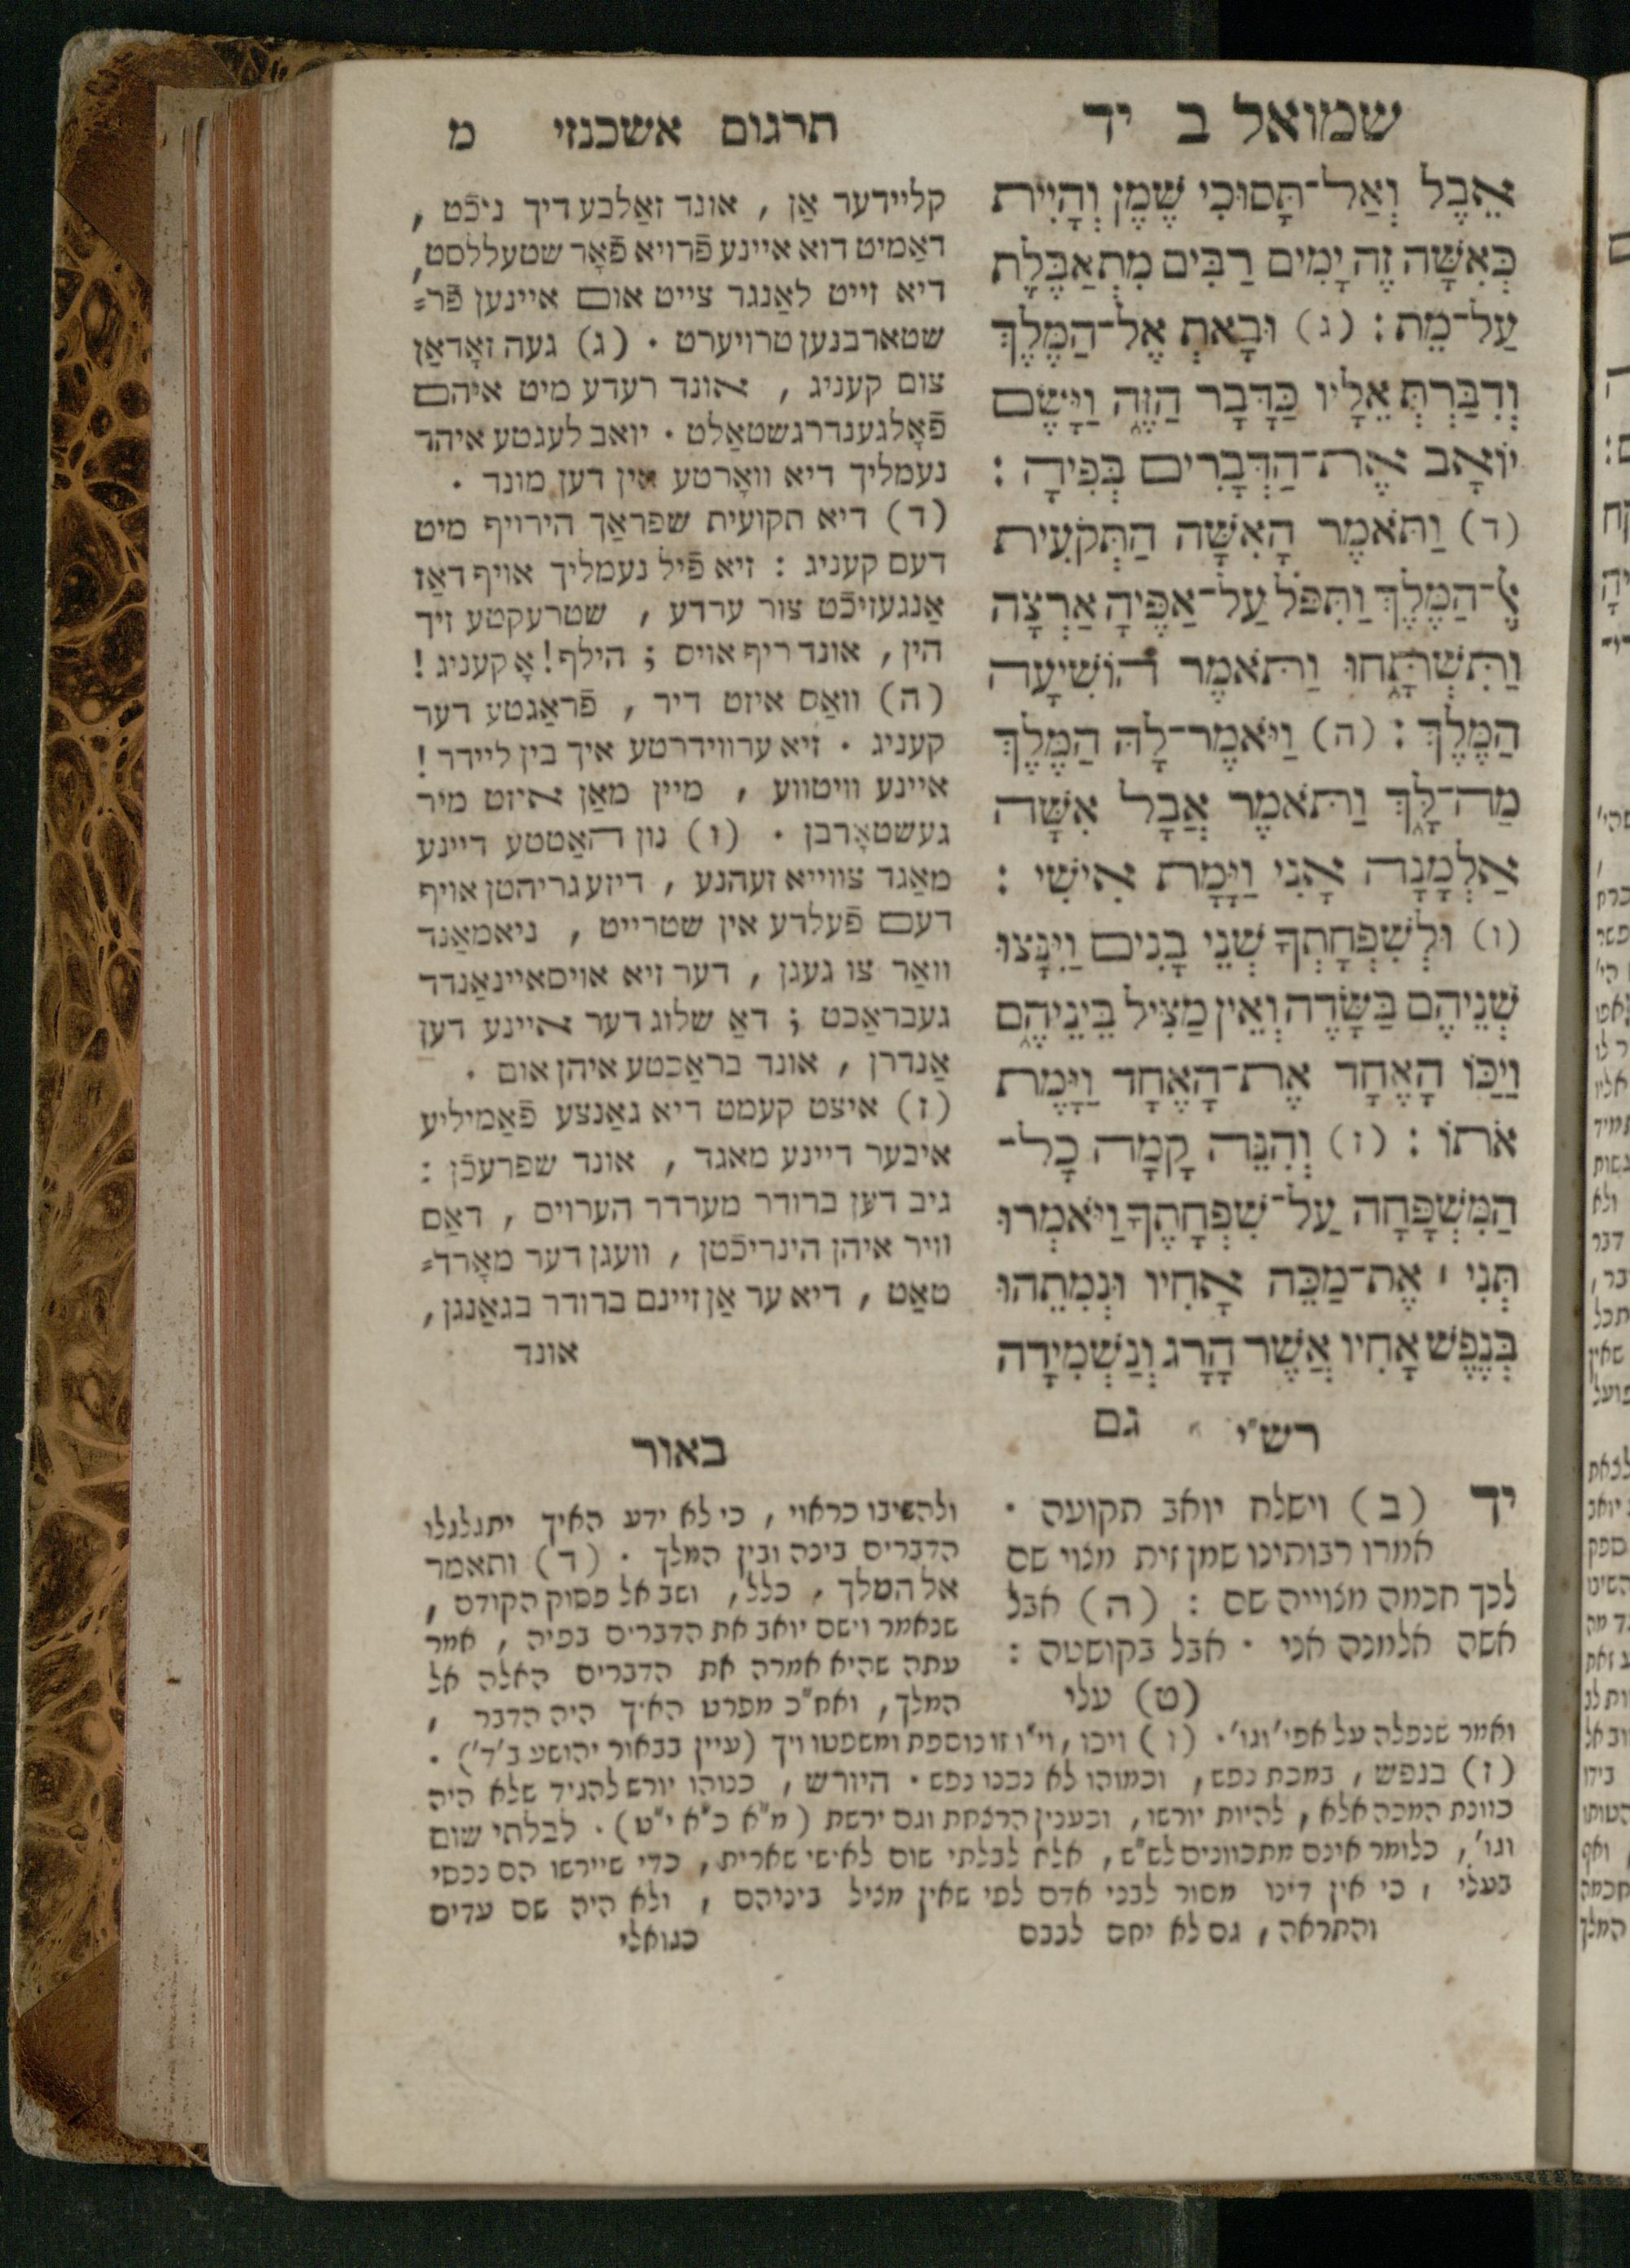 שמואל ב יד
אֵבֶל וְאַל־תָּסוּכִי שֶׁמֶן וְהָיִית
כְּאִשָּׁה זֶה יָמִים רַבִּים מִתְאַבֶּלֶת
עַל־מֵת : (ג) וּבָאת אֶל־הַמֶּלֶךְ
וְדִבַּרְתְּ אֵלָיו כַּדָּבָר הַזֶּה וַיָּשֶׂם
יוֹאָב אֶת־הַדְּבָרִים בְּפִיהָ :
(ד) וַתֹּאמֶר הָאִשָּׁה הַתְּקֹעִית
אֶל־הַמֶּלֶךְ וַתִּפֹּל עַל־אַפֶּיהָ אַרְצָה
וַתִּשְׁתָּחוּ וַתֹּאמֶר הוֹשִׁיעָה
הַמֶּלֶךְ : (ה) וַיֹּאמֶר־לָהּ הַמֶּלֶךְ
מַה־לָּךְ וַתֹּאמֶר אֲבָל אִשָּׁה
אַלְמָנָה אָנִי וַיָּמָת אִישִׁי :
(ו) וּלְשִׁפְחָתְךָ שְׁנֵי בָנִים וַיִּנָּצוּ
שְׁנֵיהֶם בַּשָּׂדֶה וְאֵין מַצִּיל בֵּינֵיהֶם
וַיַּכּוֹ הָאֶחָד אֶת־הָאֶחָד וַיָּמֶת
אֹתוֹ : (ז) וְהִנֵּה קָמָה כָל־
הַמִּשְׁפָּחָה עַל־שִׁפְחָתֶךָ וַיֹּאמְרוּ
תְּנִי ׀ אֶת־מַכֵּה אָחִיו וּנְמִתֵהוּ
בְּנֶפֶשׁ אָחִיו אֲשֶׁר הָרָג וְנַשְׁמִידָה
גם
תרגום אשכנזי מ
קליידער אַן , אונד זאַלבע דיך ניכֿט ,
דאַמיט דוא איינע פֿרויא פֿאָר שטעללסט,
דיא זייט לאַנגר צייט אום איינען פֿר=
שטארבנען טרויערט . (ג) געה זאָדאַן
צום קעניג , אונד רעדע מיט איהם
פֿאָלגענדרגשטאַלט . יואב לעגטע איהר
נעמליך דיא וואָרטע אין דען מונד .
(ד) דיא תקועית שפראַך הירויף מיט
דעם קעניג : זיא פֿיל נעמליך אויף דאַז
אַנגעזיכֿט צור ערדע , שטרעקטע זיך
הין , אונד ריף אויס ; הילף! אָ קעניג !
(ה) וואַס איזט דיר , פֿראַגטע דער
קעניג . זיא ערווידרטע איך בין ליידר !
איינע וויטווע , מיין מאַן איזט מיר
געשטאָרבן . (ו) נון האַטטע דיינע
מאַגד צווייא זעהנע , דיזע גריהטן אויף
דעם פֿעלדע אין שטרייט , ניאמאַנד
וואַר צו געגן , דער זיא אויסאיינאַנדר
געבראַכט ; דאַ שלוג דער איינע דען
אַנדרן , אונד בראַכטע איהן אום .
(ז) איצט קעמט דיא גאַנצע פֿאַמיליע
איבער דיינע מאגד , אונד שפרעכֿן :
גיב דען ברודר מערדר הערוים , דאַס
וויר איהן הינריכֿטן , וועגן דער מאָרד=
טאַט , דיא ער אַן זיינם ברודר בגאַנגן ,
אונד
רש"י
יד (ב) וישלח יואב תקועה .
אמרו רבותינו שמן זית מצוי שם
לכך חכמה מצוייה שם : (ה) אבל
אשה אלמנה אני . אבל בקושטה :
(ט) עלי
באור
ולהשיבו כראוי , כי לא ידע האיך יתגלגלו
הדברים בינה ובין המלך . (ד) ותאמר
אל המלך , כלל , ושב אל פסוק הקודם ,
שנאמר וישם יואב את הדברים בפיה , אמר
עתה שהיא אמרה את הדברים האלה אל
המלך , ואח"כ מפרט האיך היה הדבר ,
ואמר שנפלה על אפי' וגו' . (ו) ויכו , וי"ו זו נוספת ומשפטו ויך (עיין בבאור יהושע ב' ד') .
(ז) בנפש , במכת נפש , וכמוהו לא נכנו נפש . היורש , כנוהו יורש להגיד שלא היה
כוונת המכה אלא , להיות יורשו , וכענין הרצחת וגם ירשת (מ"א כ"א י"ט) . לבלתי שום
וגו' , כלומר אינם מתכוונים לש"ש , אלא לבלתי שום לאישי שארית , כדי שיירשו הם נכסי
בעלי , כי אין דינו מסור לבני אדם לפי שאין מציל ביניהם , ולא היה שם עדים
והתראה , גם לא יחם לבבם
כגואלי